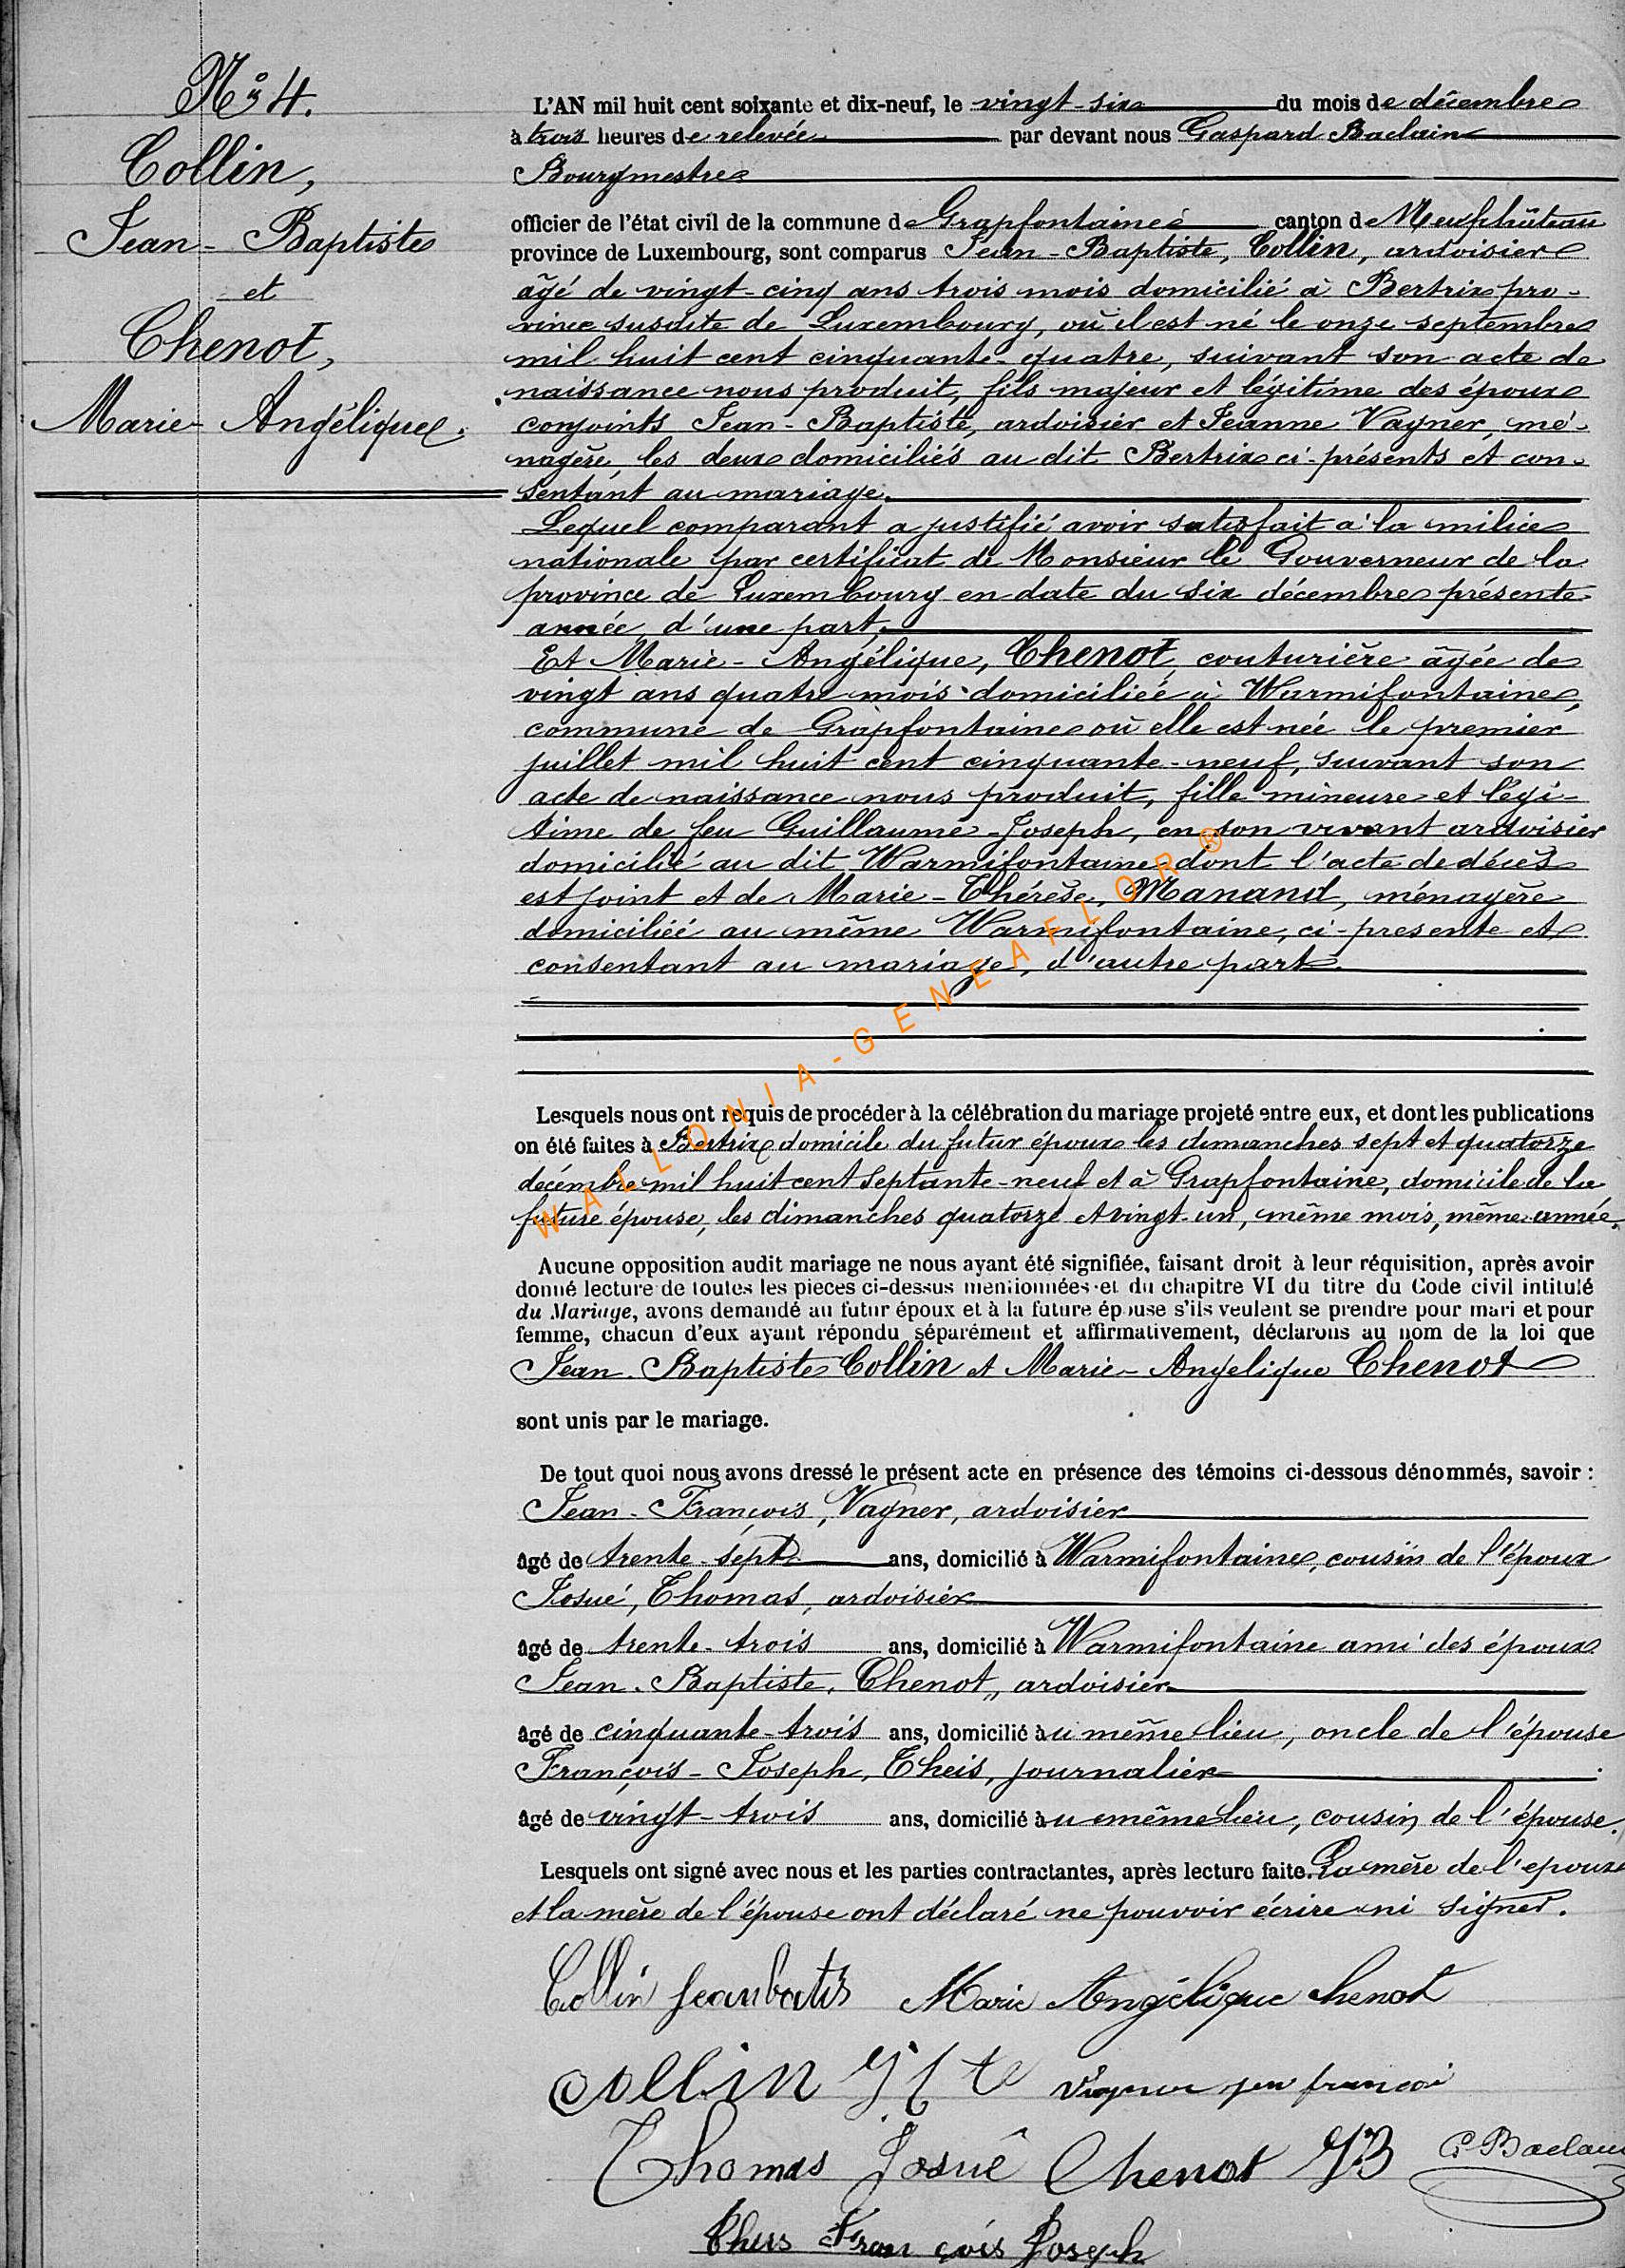 No 4.
Collin,
Jean-Baptiste
et
Chenot,
Marie-Angélique.
L'AN mil huit cent soixante et dix-neuf, le vingt-six du mois de décembre
à trois heures de relevée par devant nous Gaspard Baclain
Bourgmestre
officier de l'état civil de la commune de Grapfontaine canton de Neufchâteau
province de Luxembourg, sont comparus Jean-Baptiste, Collin, ardoisier
âgé de vingt-cinq ans trois mois domicilié à Bertrix pro-
vince susdite de Luxembourg, où il est né le onze septembre
mil huit cent cinquante-quatre, suivant son acte de
naissance nous produit, fils majeur et légitime des époux
conjoints Jean-Baptiste, ardoisier et Jeanne Vagner, mé-
nagère, les deux domiciliés au dit Bertrix ci-présents et con-
sentant au mariage.
Lequel comparant a justifié avoir satisfait à la milice
nationale par certificat de Monsieur le Gouverneur de la
province de Luxembourg en date du six décembre présente
année, d'une part,
Et Marie-Angélique, Chenot, couturière âgée de
vingt ans quatre mois domiciliée à Warmifontaine,
commune de Grapfontaine où elle est née le premier
juillet mil huit cent cinquante-neuf, suivant son
acte de naissance nous produit, fille mineure et légi-
time de feu Guillaume-Joseph, en son vivant ardoisier
domicilié au dit Warmifontaine dont l'acte de décès
est joint et de Marie-Thérèse, Manand, ménagère
domiciliée au même Warmifontaine, ci-presente et
consentant au mariage, d'autre part.
Lesquels nous ont requis de procéder à la célébration du mariage projeté entre eux, et dont les publications
on été faites à Bertrix domicile du futur époux les dimanches sept et quatorze
décembre mil huit cent septante-neuf et à Grapfontaine, domicile de la
future épouse, les dimanches quatorze et vingt-un, même mois, même année.
Aucune opposition audit mariage ne nous ayant été signifiée, faisant droit à leur réquisition, après avoir
donné lecture de toutes les pieces ci-dessus mentionnées et du chapitre VI du titre du Code civil intitulé
du Mariage, avons demandé au futur époux et à la future épouse s'ils veulent se prendre pour mari et pour
femme, chacun d'eux ayant répondu séparément et affirmativement, déclarons au nom de la loi que
Jean-Baptiste Collin et Marie-Angelique Chenot
sont unis par le mariage.
De tout quoi nous avons dressé le présent acte en présence des témoins ci-dessous dénommés, savoir :
Jean-François, Vagner, ardoisier
âgé de trente-sept ans, domicilié à Warmifontaine, cousin de l'époux
Josué, Thomas, ardoisier
âgé de trente-trois ans, domicilié à Warmifontaine ami des époux
Jean-Baptiste, Chenot, ardoisier
âgé de cinquante-trois ans, domicilié au même lieu, oncle de l'épouse
François-Joseph, Theis, journalier
âgé de vingt-trois ans, domicilié au même lieu, cousin de l'épouse.
Lesquels ont signé avec nous et les parties contractantes, après lecture faite. La mère de l'epoux
et la mère de l'épouse ont déclaré ne pouvoir écrire ni signer.
Collin Marie Angélique chenot
Collin Jte francoi
Thomas Josué Chenot JB G Baclain
François Joseph
WALLONIA-GENEAFLOR ®